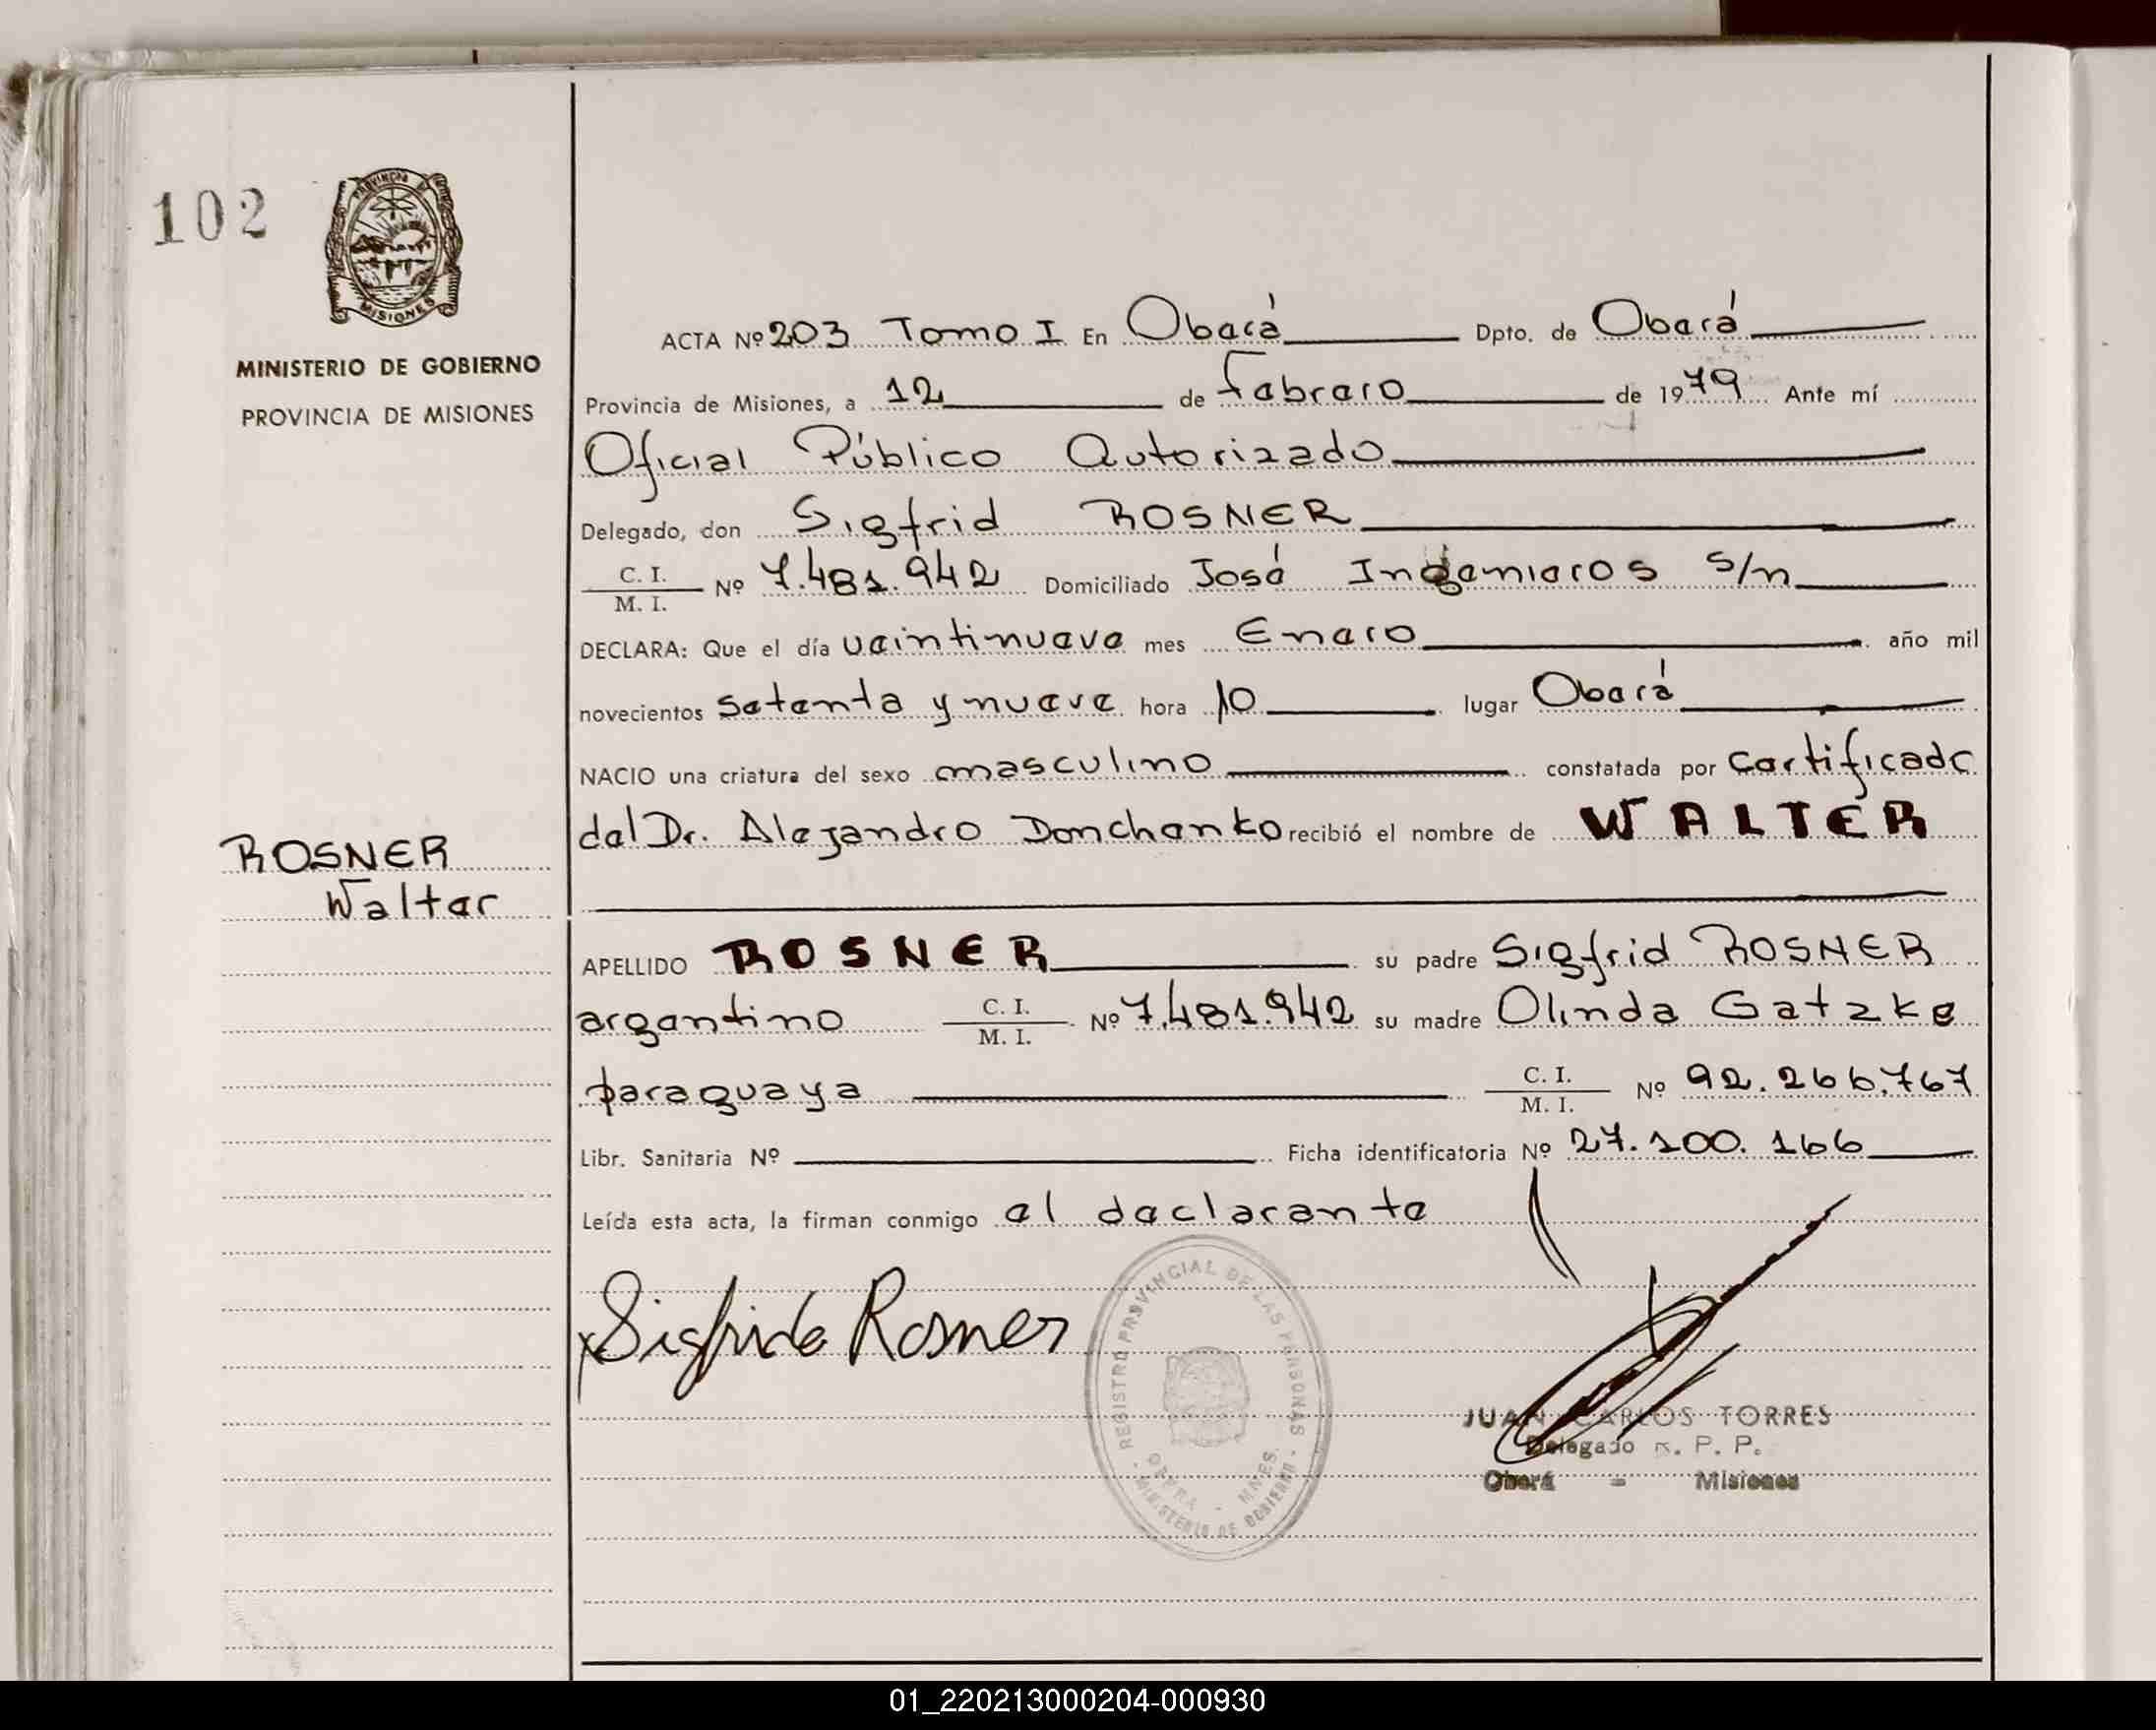 102
PROVINCIA DE
MISIONES
MINISTERIO DE GOBIERNO
PROVINCIA DE MISIONES
ROSNER
Walter
ACTA Nº 203 Tomo I En Oberá Dpto. de Oberá
Provincia de Misiones, a 12 de febrero de 1979 Ante mí
Oficial Público Autorizado
Delegado, don Sigfrid ROSNER
C. I.
M. I. Nº 7.481.942 Domiciliado José Ingenieros S/n
DECLARA: Que el día veintinueve mes Enero año mil
novecientos setenta y nueve hora 10 lugar Oberá
NACIO una criatura del sexo masculino constatada por Certificado
del Dr. Alejandro Donchenko recibió el nombre de WALTER
APELLIDO ROSNER su padre Sigfrid ROSNER
argentino C. I. M. I. Nº 7.481.942 su madre Olinda Gatzke
paraguaya C. I. M. I. Nº 92.266.767
Libr. Sanitaria Nº Ficha identificatoria Nº 27.100.166
Leída esta acta, la firman conmigo el declarante
Sigfrido Rosner
REGISTRO PROVINCIAL DE LAS PERSONAS
OBERA - MNES.
MINISTERIO DE GOBIERNO
JUAN CARLOS TORRES
Delegado R. P. P.
Oberá - Misiones
01_220213000204-000930